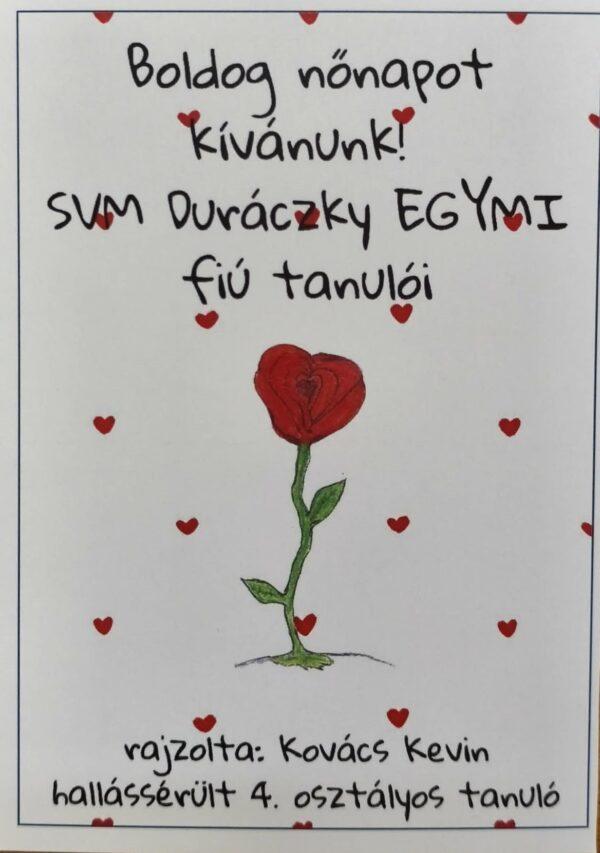 Boldog nőnapot
kívánunk!
SVM Duráczky EGYMI
fiú tanulói
rajzolta: Kovács Kevin
hallássérült 4. osztályos tanuló